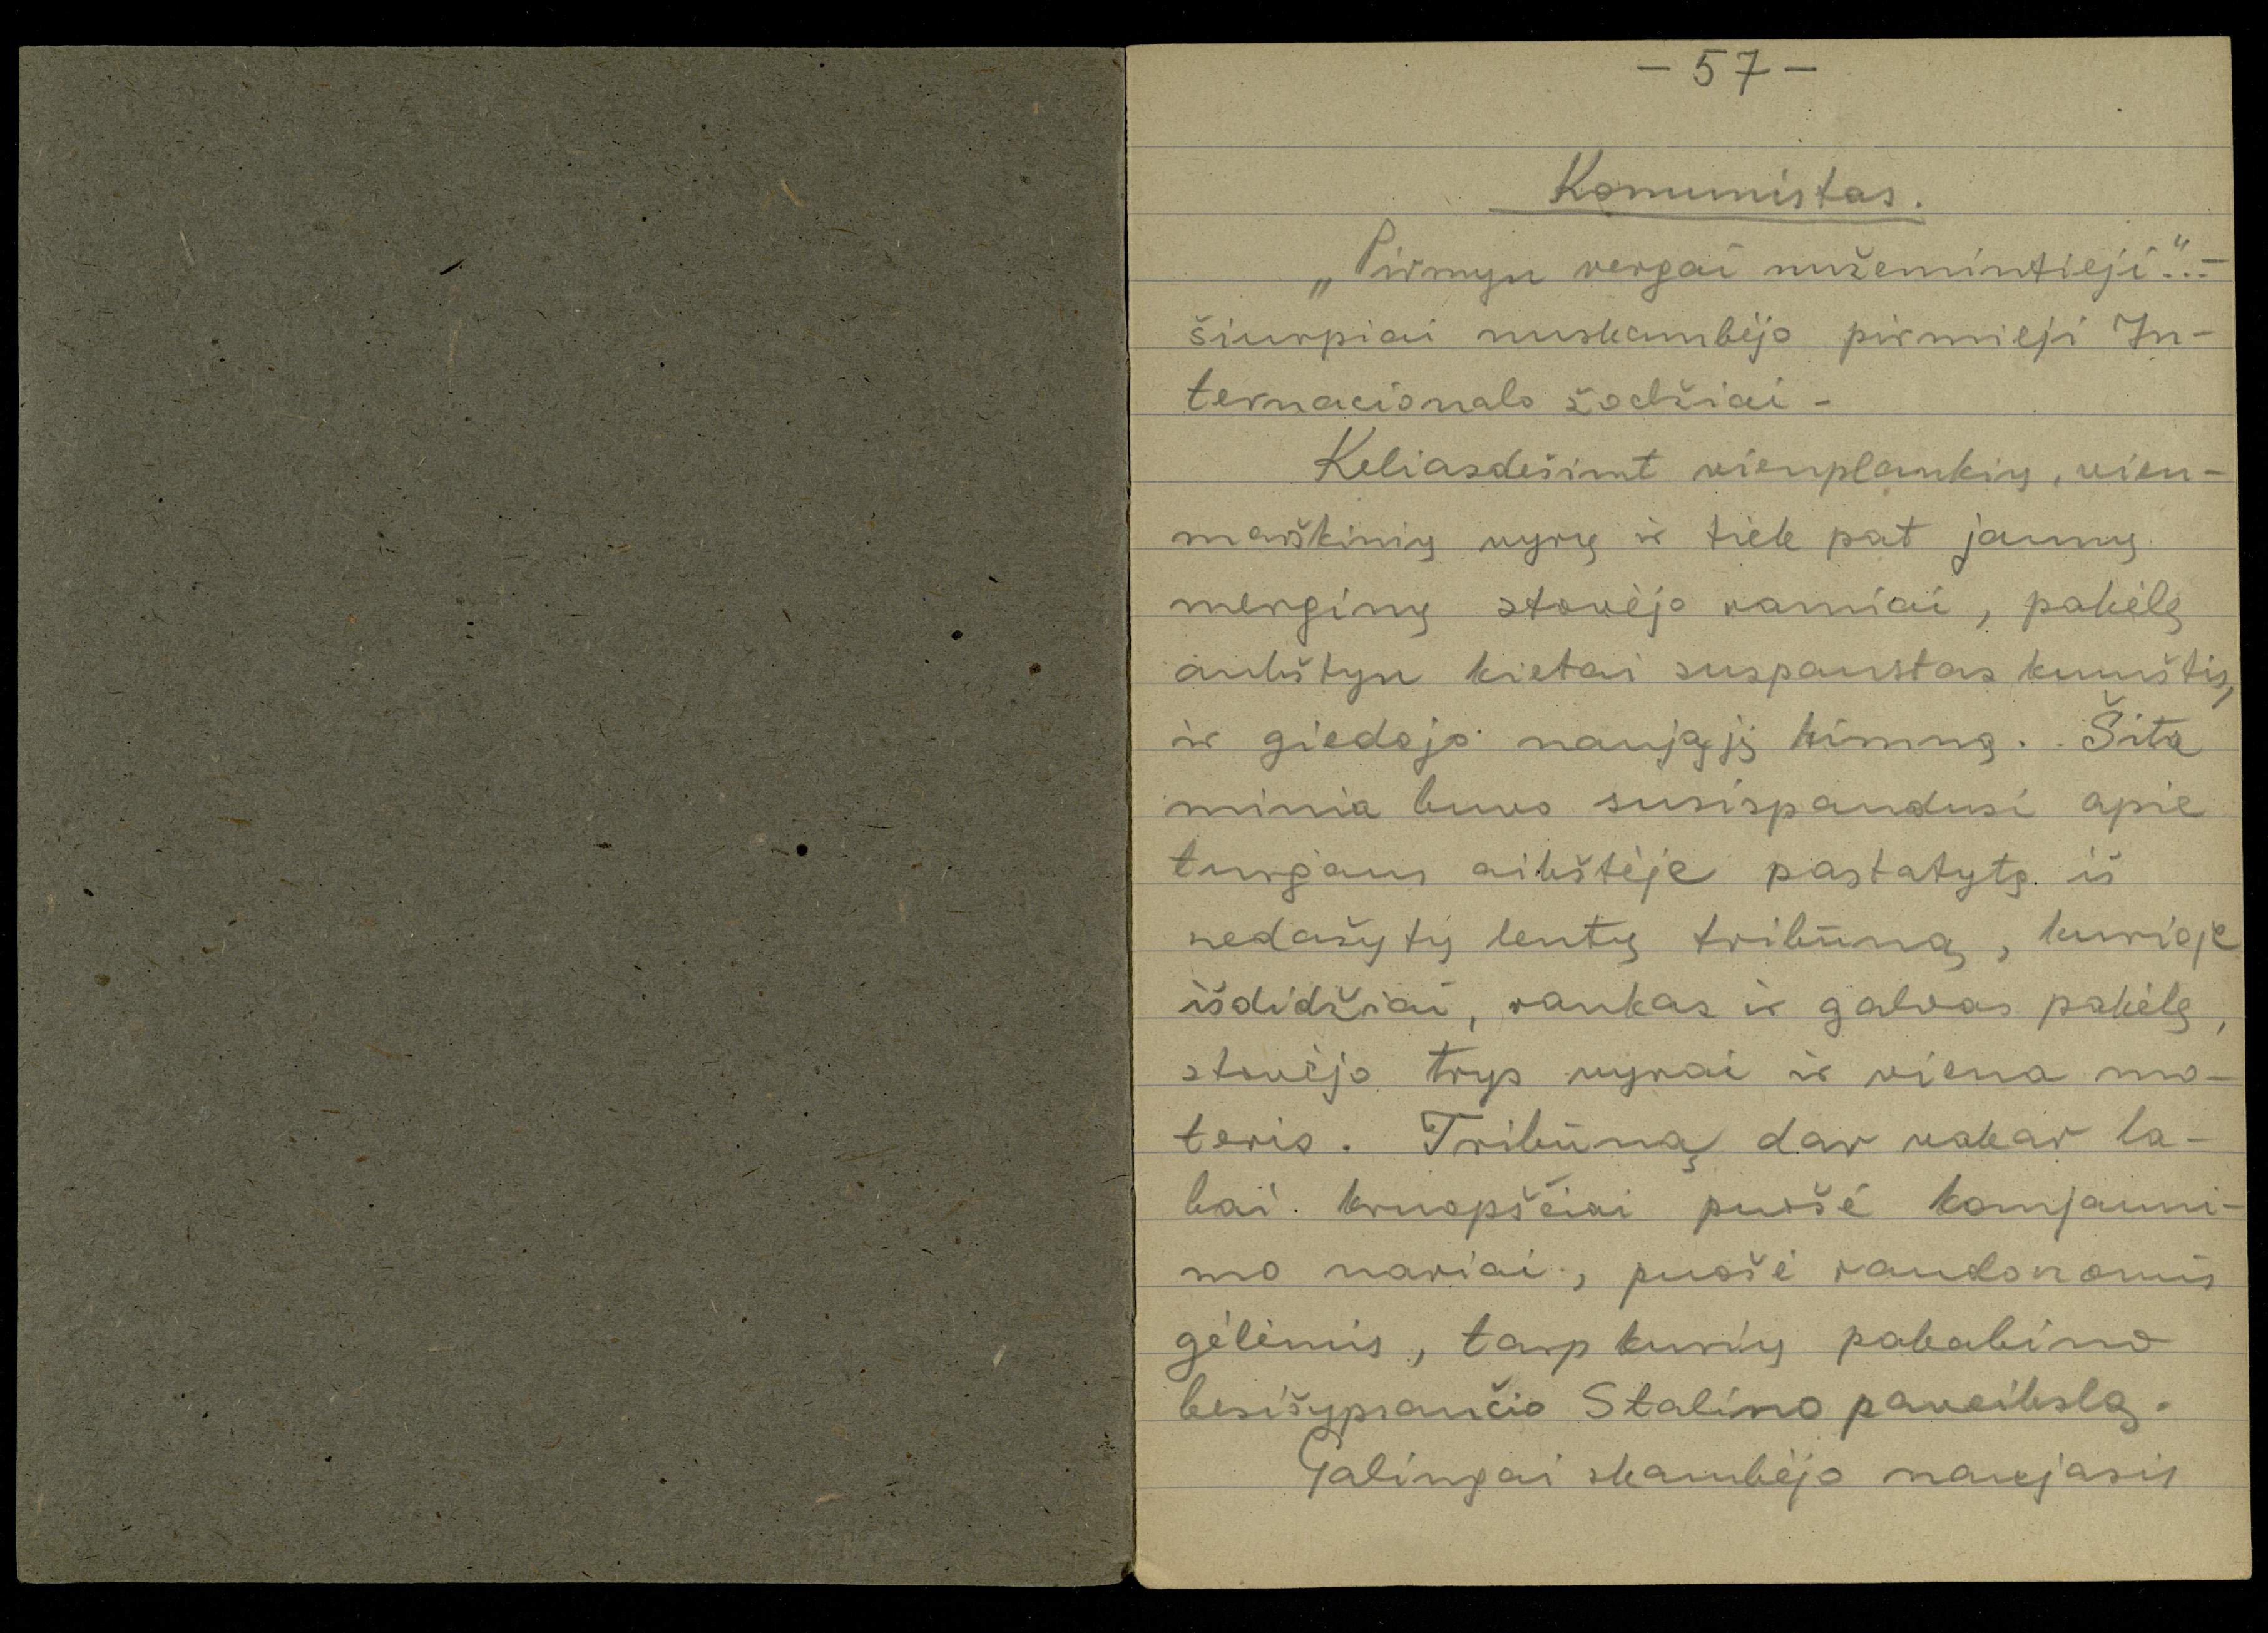 - 57 -
Komunistas.
„Pirmyn vergai nužemintieji“... -
šiurpiai nuskambėjo pirmieji In-
ternacionalo žodžiai -
Keliasdešimt vienplaukių, vien-
marškinių vyrų ir tiek pat jaunų
merginų stovėjo ramiai, pakėlę
aukštyn kietai suspaustas kumštis,
ir giedojo naująjį himną. Šita
minia buvo susispaudusi apie
turgaus aikštėje pastatytą iš
nedažytų lentų tribūną, kurioje
išdidžiai, rankas ir galvas pakėlę,
stovėjo trys vyrai ir viena mo-
teris. Tribūną dar vakar la-
bai kruopščiai puošė komjauni-
mo nariai, puošė raudonomis
gėlėmis, tarp kurių pakabino
besišypsančio Stalino paveikslą.
Galingai skambėjo naujasis